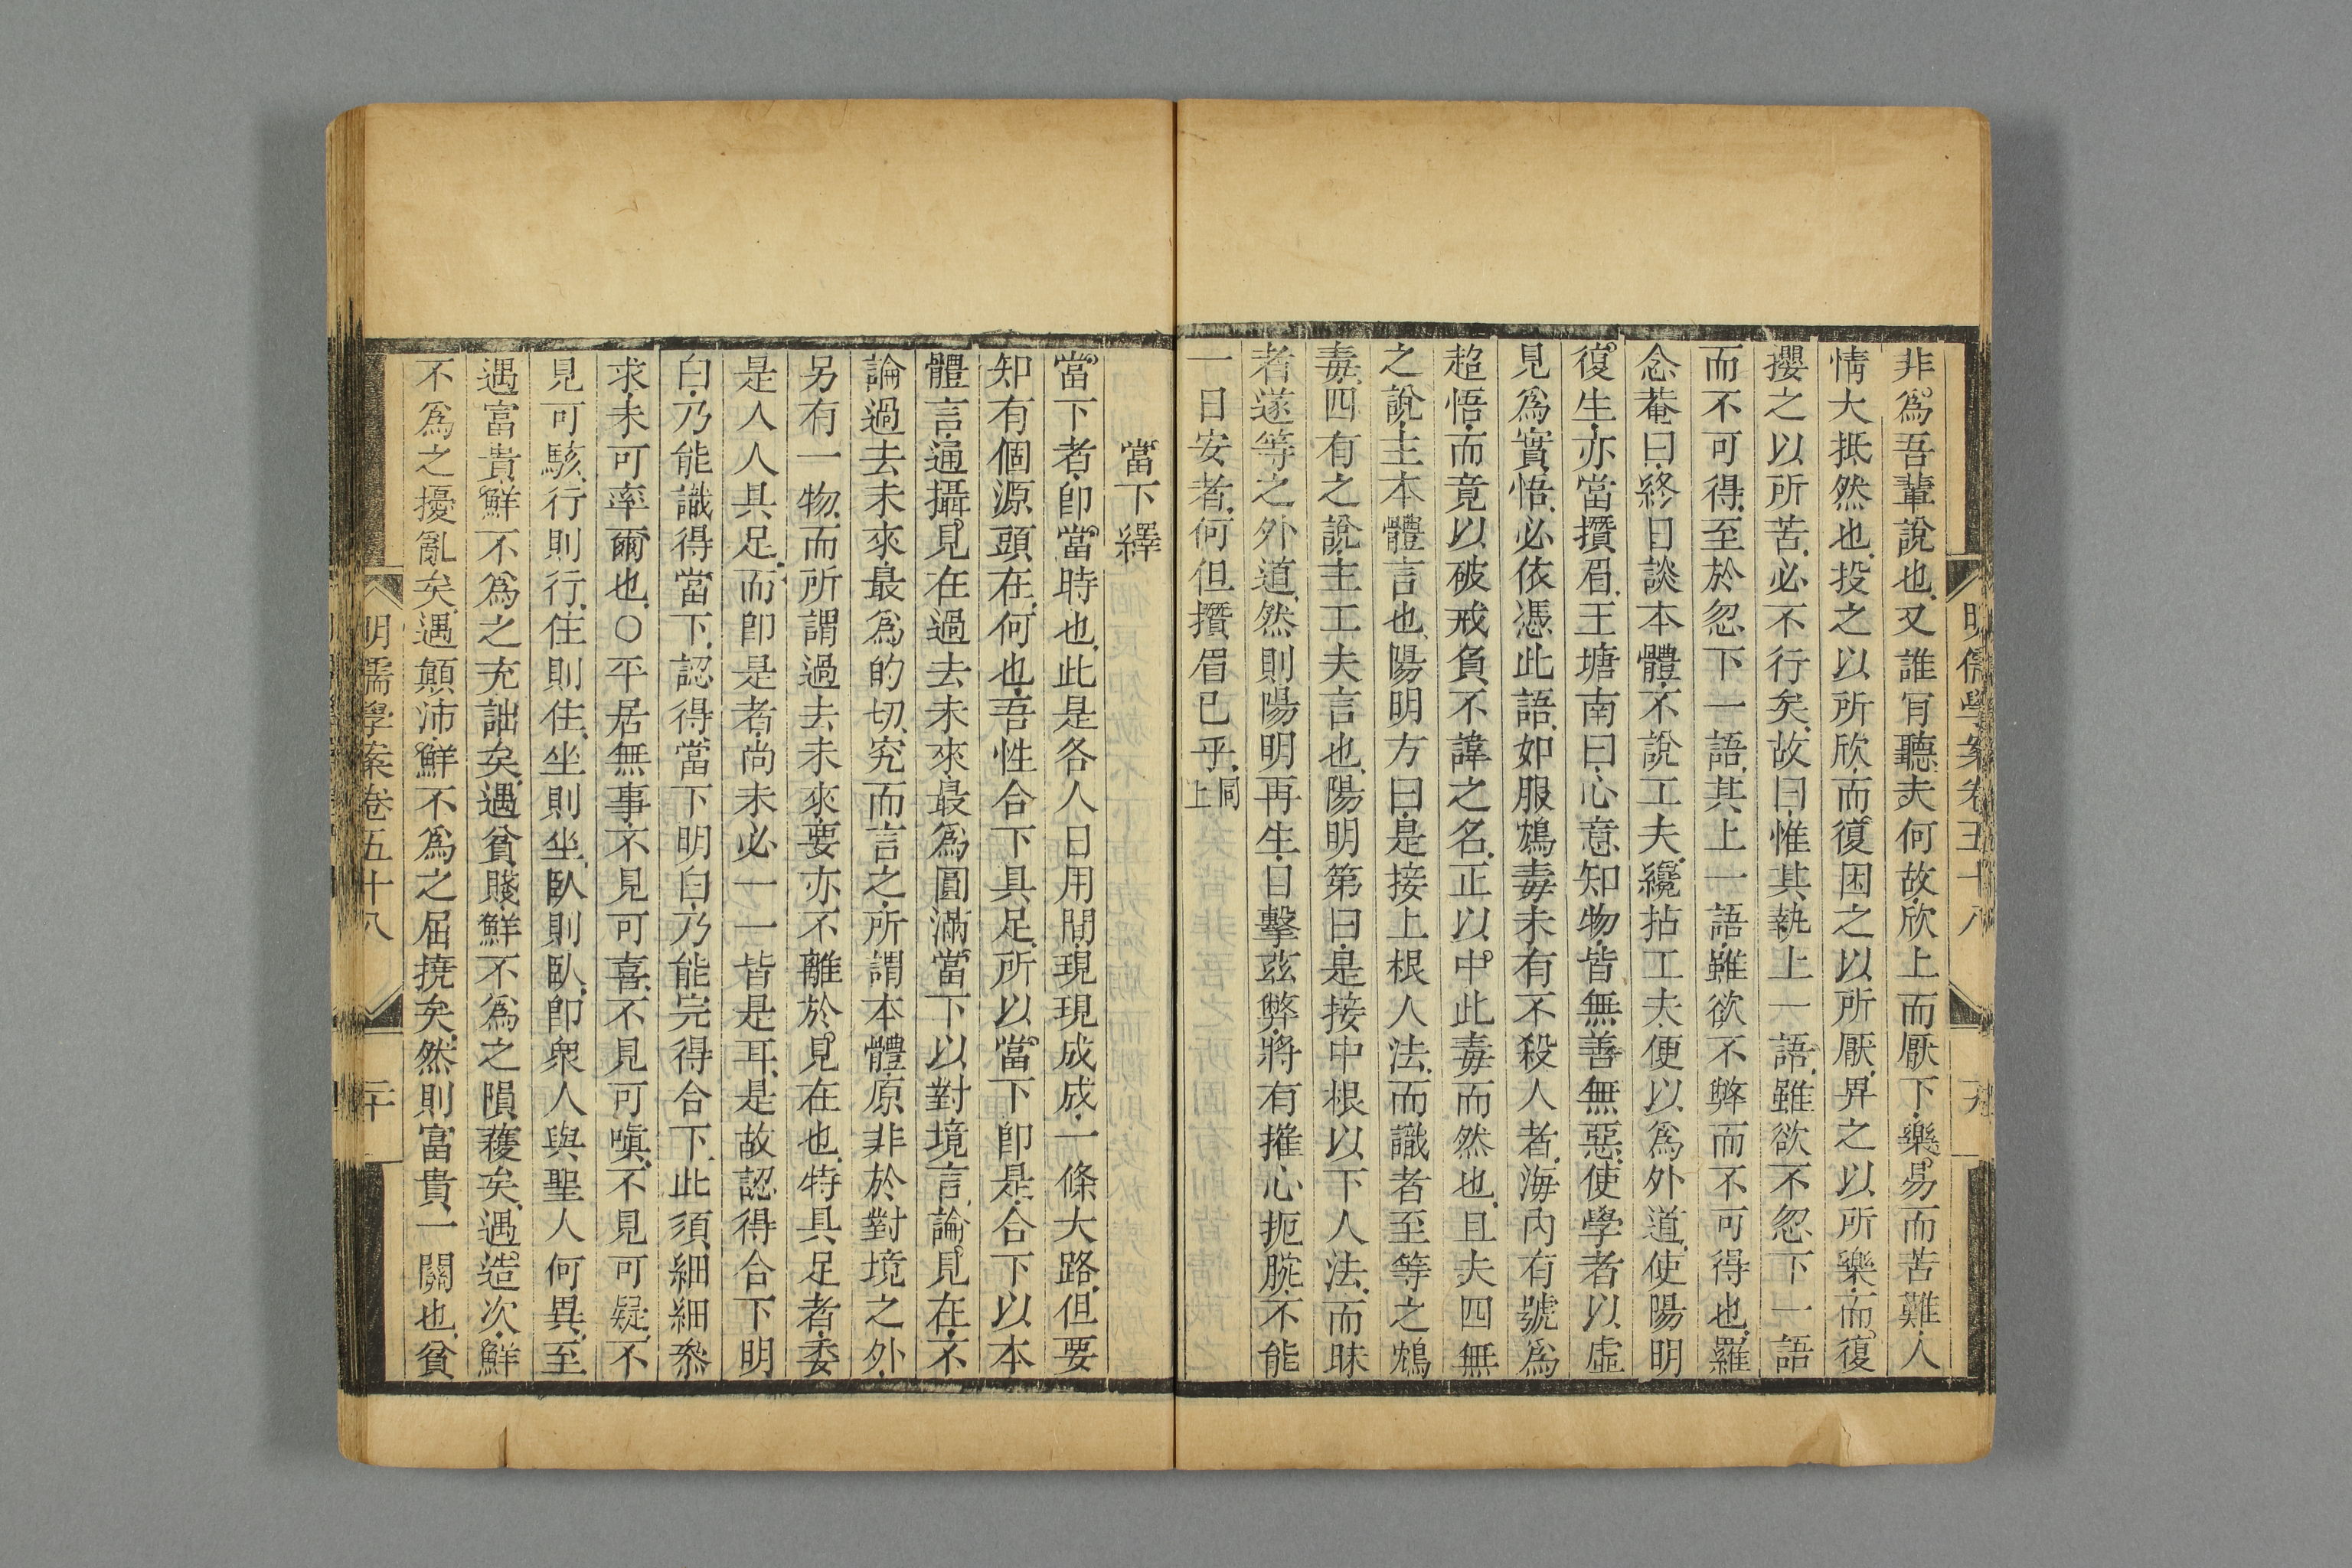 明儒學案卷五十八
非爲吾輩說也又誰肎聽夫何故欣上而厭下樂易而苦難人
情大抵然也投之以所欣而復困之以所厭畀之以所樂而復
攖之以所苦必不行矣故曰惟其執上一語雖欲不忽下一語
而不可得至於忽下一語其上一語雖欲不弊而不可得也羅
念菴曰終日談本體不說工夫纔拈工夫便以爲外道使陽明
復生亦當攢眉王塘南曰心意知物皆無善無惡使學者以虛
見爲實悟必依憑此語如服鴆毒未有不殺人者海內有號爲
超悟而竟以破戒負不諱之名正以中此毒而然也且夫四無
之說主本體言也陽明方曰是接上根人法而識者至等之鴆
毒四有之說主工夫言也陽明第曰是接中根以下人法而昧
者遂等之外道然則陽明再生目擊茲弊將有摧心扼腕不能
一日安者何但攢眉已乎同上
當下繹
當下者卽當時也此是各人日用間現現成成一條大路但要
知有個源頭在何也吾性合下具足所以當下卽是合下以本
體言通攝見在過去未來最爲圓滿當下以對境言論見在不
論過去未來最爲的切究而言之所謂本體原非於對境之外
另有一物而所謂過去未來要亦不離於見在也特具足者委
是人人具足而卽是者尚未必一一皆是耳是故認得合下明
白乃能識得當下認得當下明白乃能完得合下此須細細參
求未可率爾也○平居無事不見可喜不見可嗔不見可疑不
見可駭行則行住則住坐則坐臥則臥卽衆人與聖人何異至
遇富貴鮮不爲之充詘矣遇貧賤鮮不爲之隕穫矣遇造次鮮
不爲之擾亂矣遇顛沛鮮不爲之屈撓矣然則富貴一關也貧
明儒學案卷五十八
二十